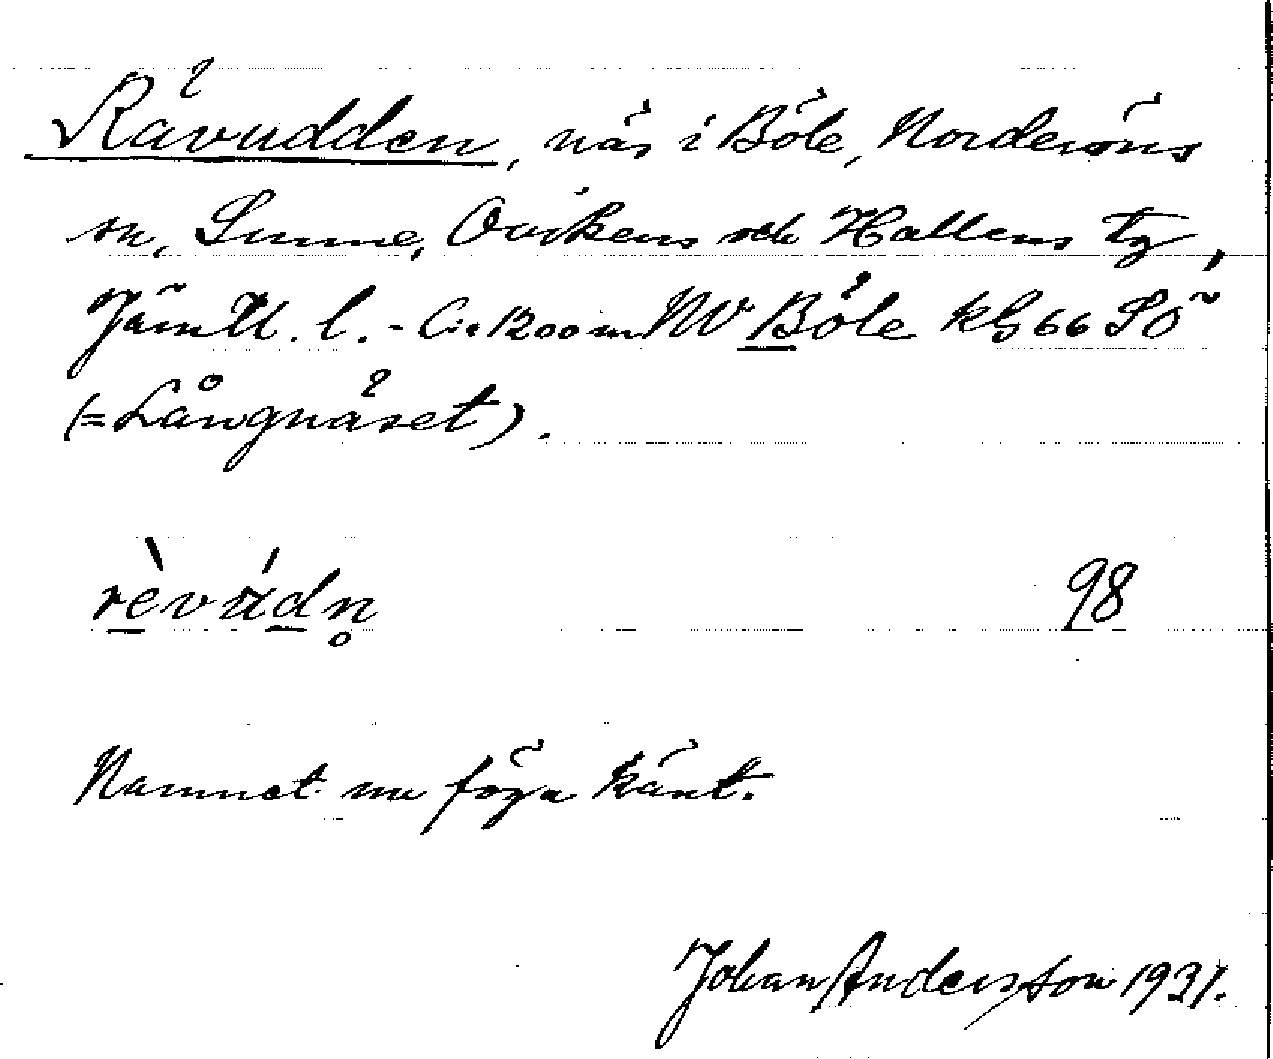 Rävudden, näs i Böle, Norderöns
sn, Sunne, Ovikens och Hallens tg,
Jämtl. l. - C:a 1200 m NV Böle kb 66 SÖ
(= Långnäset).
rèvʉ́dn̥ 98
Namnet nu föga känt.
Johan Andersson 1931.